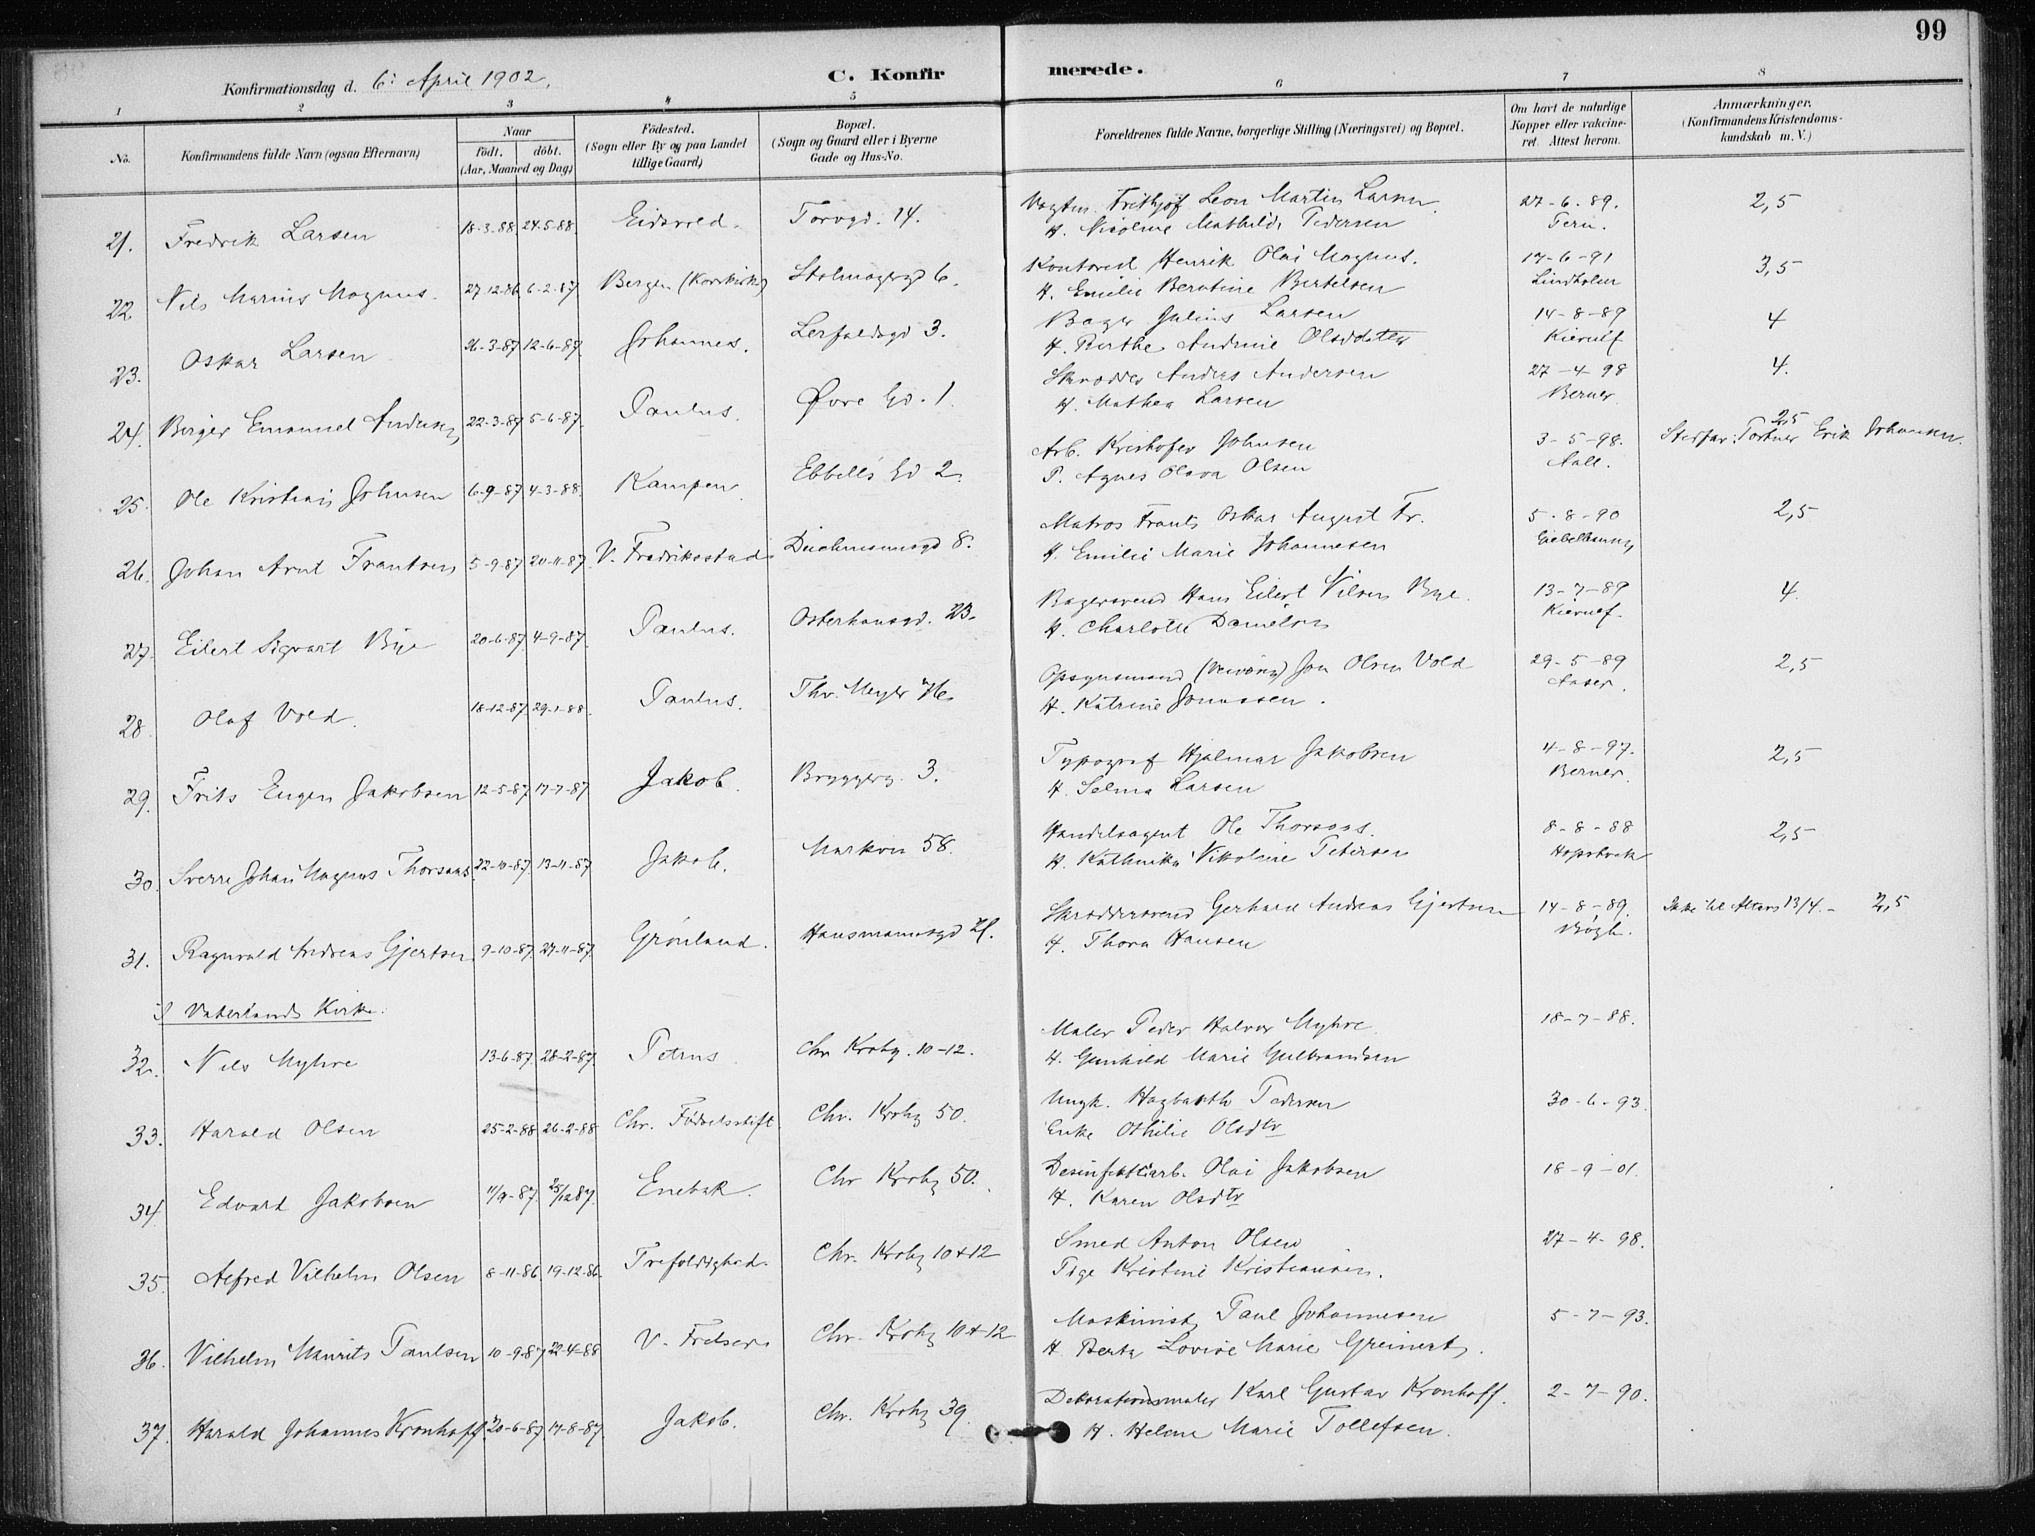 99
Konfirmationsdag d. 6: April 1902.
C. Konfirmerede.
1 2 3 4 5 6 7 8
No. Konfirmandens fulde Navn (ogsaa Efternavn) Naar födt. döbt. (Aar, Maaned og Dag) Födested. (Sogn eller By og paa Landet tillige Gaard) Bopæl. (Sogn og Gaard eller i Byerne Gade og Hus-No. Forældrenes fulde Navne, borgerlige Stilling (Næringsvei) og Bopæl. Om havt de naturlige Kopper eller vakcineret. Attest herom. Anmærkninger. (Konfirmandens Kristendomskundskab m. V.)
21. Fredrik Larsen 18-3-88 24-5-88 Eidsvold. Torvgd. 14. Vogtm. Frithjof Leon Martin Larsen 27-6-89. 2,5
H. Nicoline Mathilde Pedersen
22 Nils Marius Magnus. 27-12-86 6-2-87 Bergen (Korskirke) Stolmagergd 6. Kontorist Henrik Olai Magnus. 17-6-91 3,5
H. Emilie Berntine Bertelsen Lindholm
23. Oskar Larsen 26-3-87 12-6-87 Johannes. Lerfaldsgd 3. Bager Julius Larsen 14-8-89 4
H. Berthe Andrine Olsdatter Kierulf
24. Birger Emanuel Andersen 22-3-87 5-6-87. Paulus. Øvre Gd. 1. Skrædder Anders Andersen 27-4-98 4.
H. Mathea Larsen Berner.
25. Ole Kristian Johnsen 6-9-87 4-3-88. Kampen Ebbells Gd 2. Arb. Kristofer Johnsen 3-5-98. 2,5 Stedfar: Erik Johansen.
P. Agnes Olava Olsen Aall.
26. Johan Arnt Frantsen 5-9-87 20-11-87 V. Fredriksstad 8. Matros Frants Oskar August Fr. 5-8-90 2,5
H. Emilie Marie Johannesen
27. Eilert Sigvart Bye 20-6-87 4-9-87. Paulus. Osterhausgd. 23. Bagersvend Hans Eilert Nilsen Bye. 13-7-89 4.
H. Charlotte Danielsen Kierulf.
28. Olaf Vold. 18-12-87 29-1-88. Paulus. Thv. Meyer Opsynsmand Jon Olsen Vold 29-5-89 2,5
H. Katrine Jonassen. Aaser.
29. Frits Eugen Jakobsen 12-5-87 17-7-87 Jakob. Bryggerg. 3. Typograf Hjalmar Jakobsen 4-8-97. 2,5
H. Selma Larsen Berner.
30. Sverre Johan Magnus Thorsaas 22-10-87 13-11-87 Jakob. Markvn 58. Handelsagent Ole Thorsaas. 8-8-88 2,5
H. Kathinka Nikoline Petersen Hopstock
31. Ragnvald Andreas Gjertsen 9-10-87 27-11-87. Grønland. Hausmannsgd 21. Skræddersvend Gerhard Andreas Gjertsen 14-8-89. Ikke til Alters 13/4. - 2,5
H. Thora Hansen Bøgh.
i Vaterlands Kirke.
32. Nils Myhre 13-6-87. 28-2-87. Petrus Chr Krohg. 10-12. Maler Peder Halvor Myhre 18-7-88.
H. Gunhild Marie Gulbrandsen
33. Harald Olsen 25-2-88 26-2-88 Chr. Födselsstift Chr. Krohg 50. Ungk. Hagbarth Pedersen 30-6-93.
Enke Othilie Olsdtr
34 Edvard Jakobsen 11/9-87. 25/12 87. Enebak. Chr Krohg 50. Desinfektiarb. Olai Jakobsen 18-9-01.
H. Karen Olsdtr
35. Alfred Vilhelm Olsen 8-11-86 19-12-86. Trefoldighed. Chr. Krohg 10+12 Smed Anton Olsen 27-4-98.
Pige Kristine Kristiansen.
36. Vilhelm Maurits Paulsen 10-9-87 22-4-88 V. Frelsers Chr. Krohg 10+12 Maskinist Paul Johannesen 5-7-93.
H Berta Lovise Marie Greinert.
37. Harald Johannes Kronhoff. 20-6-87 14-8-87 Jakob. Chr. Krohg 39. Dekorationsmaler Karl Gustav Kronhoff. 2-7-90.
H. Helene Marie Tollefsen.